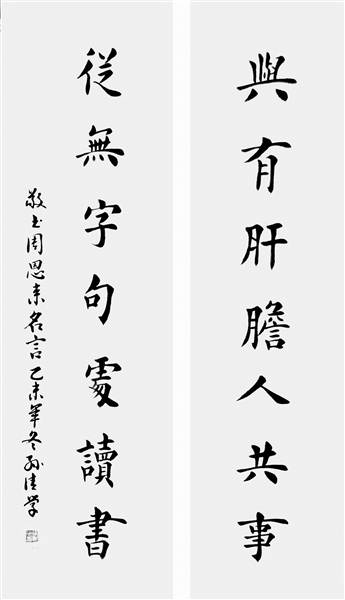 與有肝膽人共事
從無字句處讀書
敬書周恩来名言乙未年冬孙清学